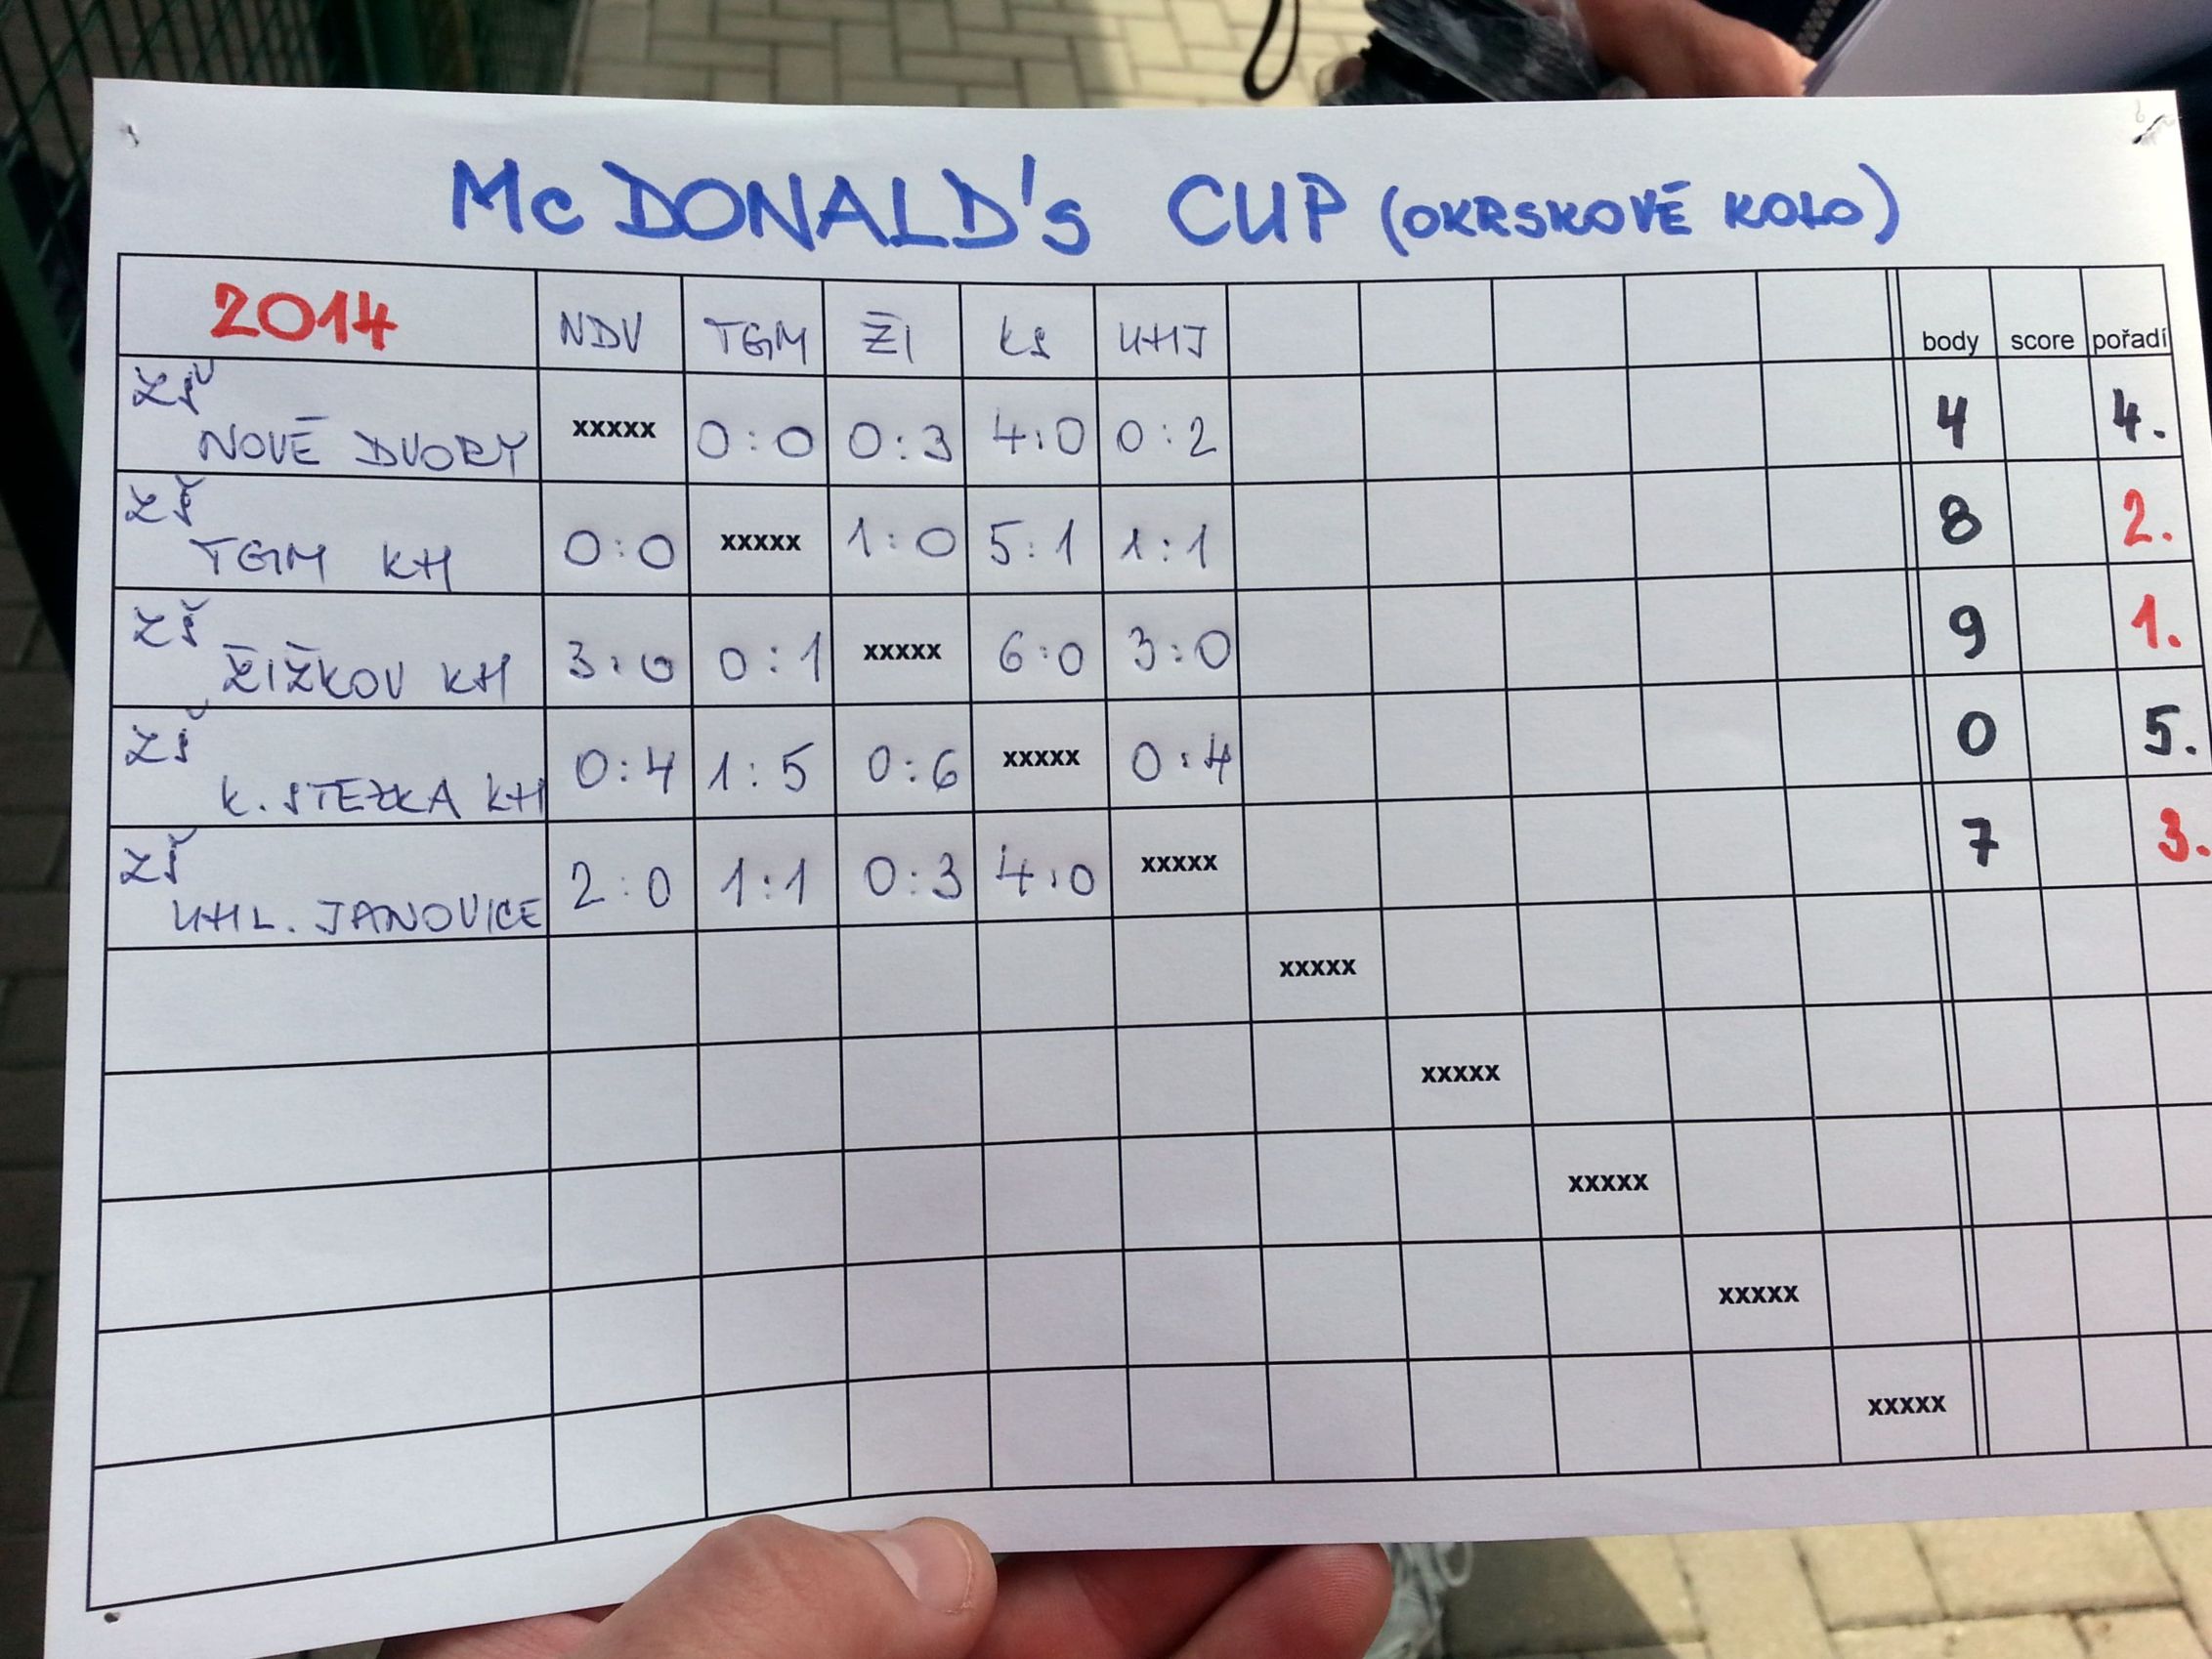 Mc DONALD's CUP (OKRSKOVÉ KOLO)
2014 NDV TGM ŽI KS UHJ body score pořadí
ZŠ
NOVÉ DVORY xxxxx 0:0 0:3 4:0 0:2 4 4.
ZŠ
TGM KH 0:0 xxxxx 1:0 5:1 1:1 8 2.
ZŠ
ŽIŽKOV KH 3:0 0:1 xxxxx 6:0 3:0 9 1.
ZŠ
K. STEZKA KH 0:4 1:5 0:6 xxxxx 0:4 0 5.
ZŠ
UHL. JANOVICE 2:0 1:1 0:3 4:0 xxxxx 7 3.
xxxxx
xxxxx
xxxxx
xxxxx
xxxxx